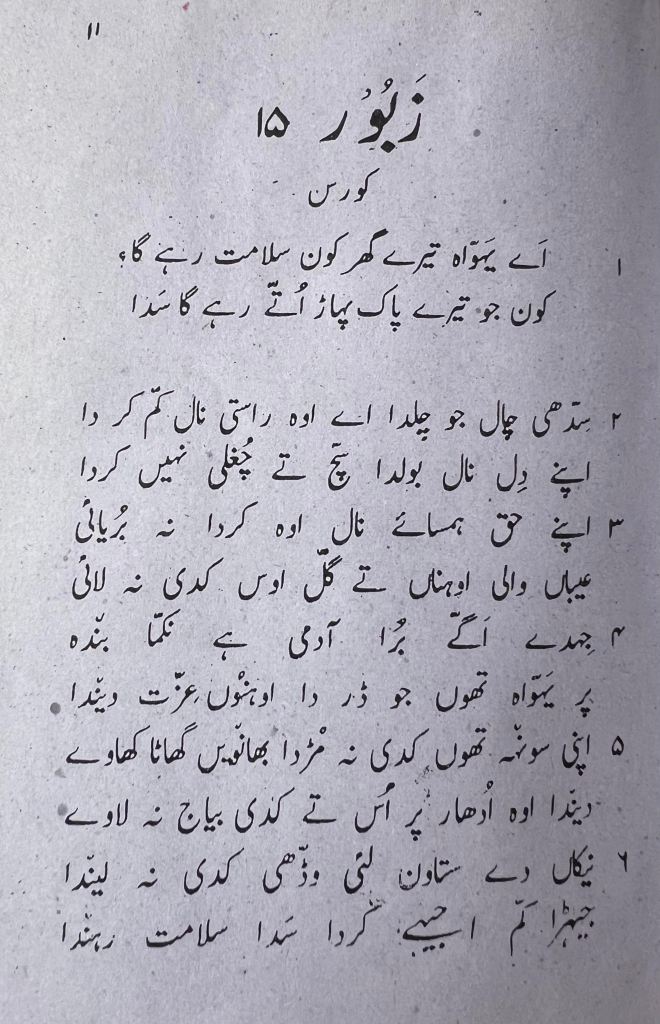 ۱۱
زَبُور ۱۵
کورس
۱ اَے یَہوّاہ تیرے گھر کون سلامت رہے گا؟
کون جو تیرے پاک پہاڑ اُتّے رہے گا سَدا
۲ سِدّھی چال جو چلدا اے اوہ راستی نال کمّ کر دا
اپنے دِل نال بولدا سَچّ تے چُغلی نہیں کردا
۳ اپنے حق ہمسائے نال اوہ کردا نہ بُریائی
عیباں والی اوہناں تے گلّ اوس کدی نہ لائی
۴ جِہدے اَگّے بُرا آدمی ہے نکمّا بندہ
پر یَہوّاہ تھوں جو ڈر دا اوہنوں عِزّت دیندا
۵ اپنی سونہہ تھوں کدی نہ مُڑدا بھانویں گھاٹا کھاوے
دیندا اوہ اُدھار پر اُس تے کدی بیاج نہ لاوے
۶ نیکاں دے ستاون لئی وڈّھی کدی نہ لیندا
جیہڑا کمّ اجیہے کردا سَدا سلامت رہندا